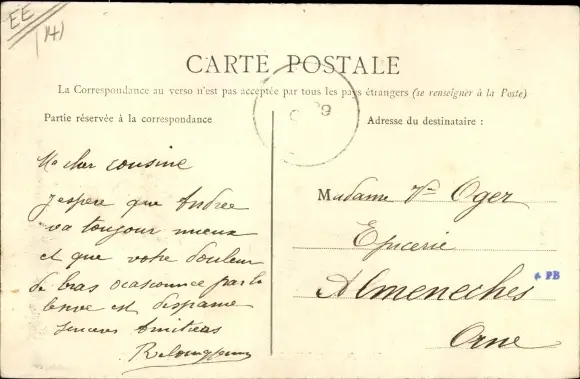 EE
(14)
CARTE POSTALE
La Correspondance au verso n'est pas acceptée par tous les pays étrangers (se renseigner à la Poste)
Partie réservée à la correspondance
Adresse du destinataire :
Ma cher cousine
J'espere que Andree
va toujour mieux
et que votre douleur
de bras ocasionnée par le
est disparue
sinceres Amitiees
Madame Vve Oger
Epicerie
Almeneches
PB
Orne